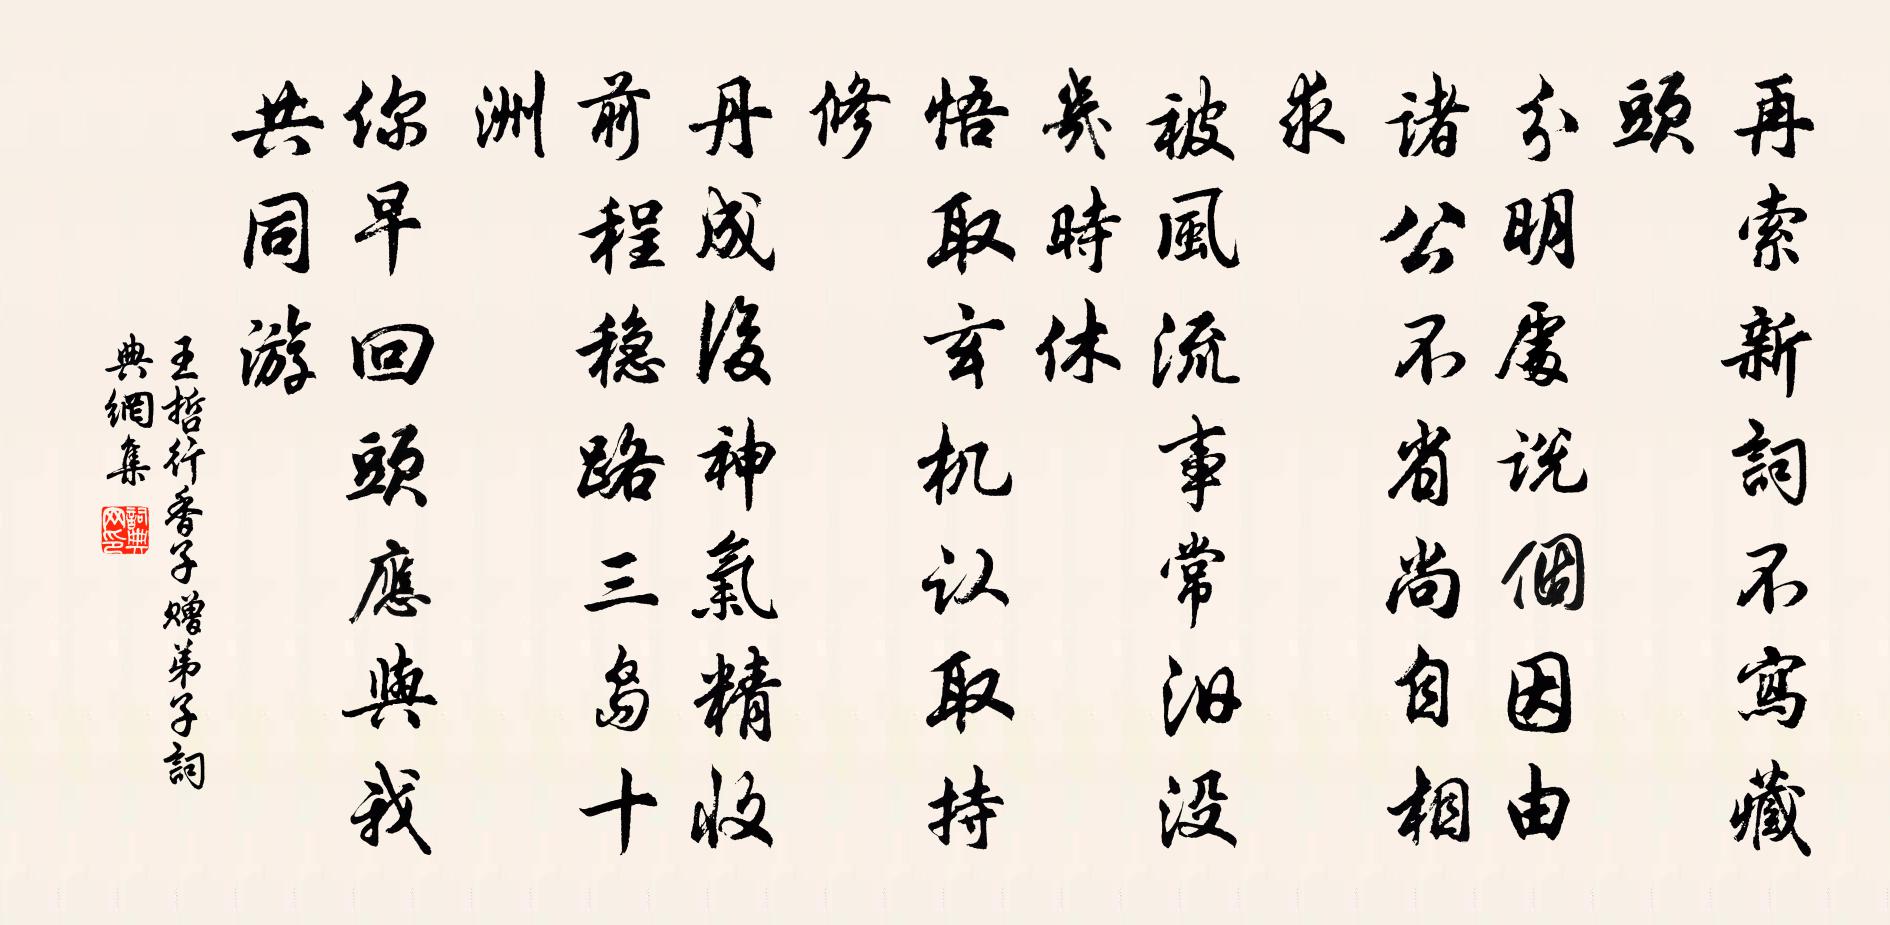 再索新詞不寫藏
頭
分明處说個因由
诸公不省尚自相
求
被風流事常汨没
幾時休
悟取玄机认取持
修
丹成後神氣精收
前程稳路三島十
洲
你早回頭應與我
共同游
王哲行香子赠弟子詞
典網集
詞典网印